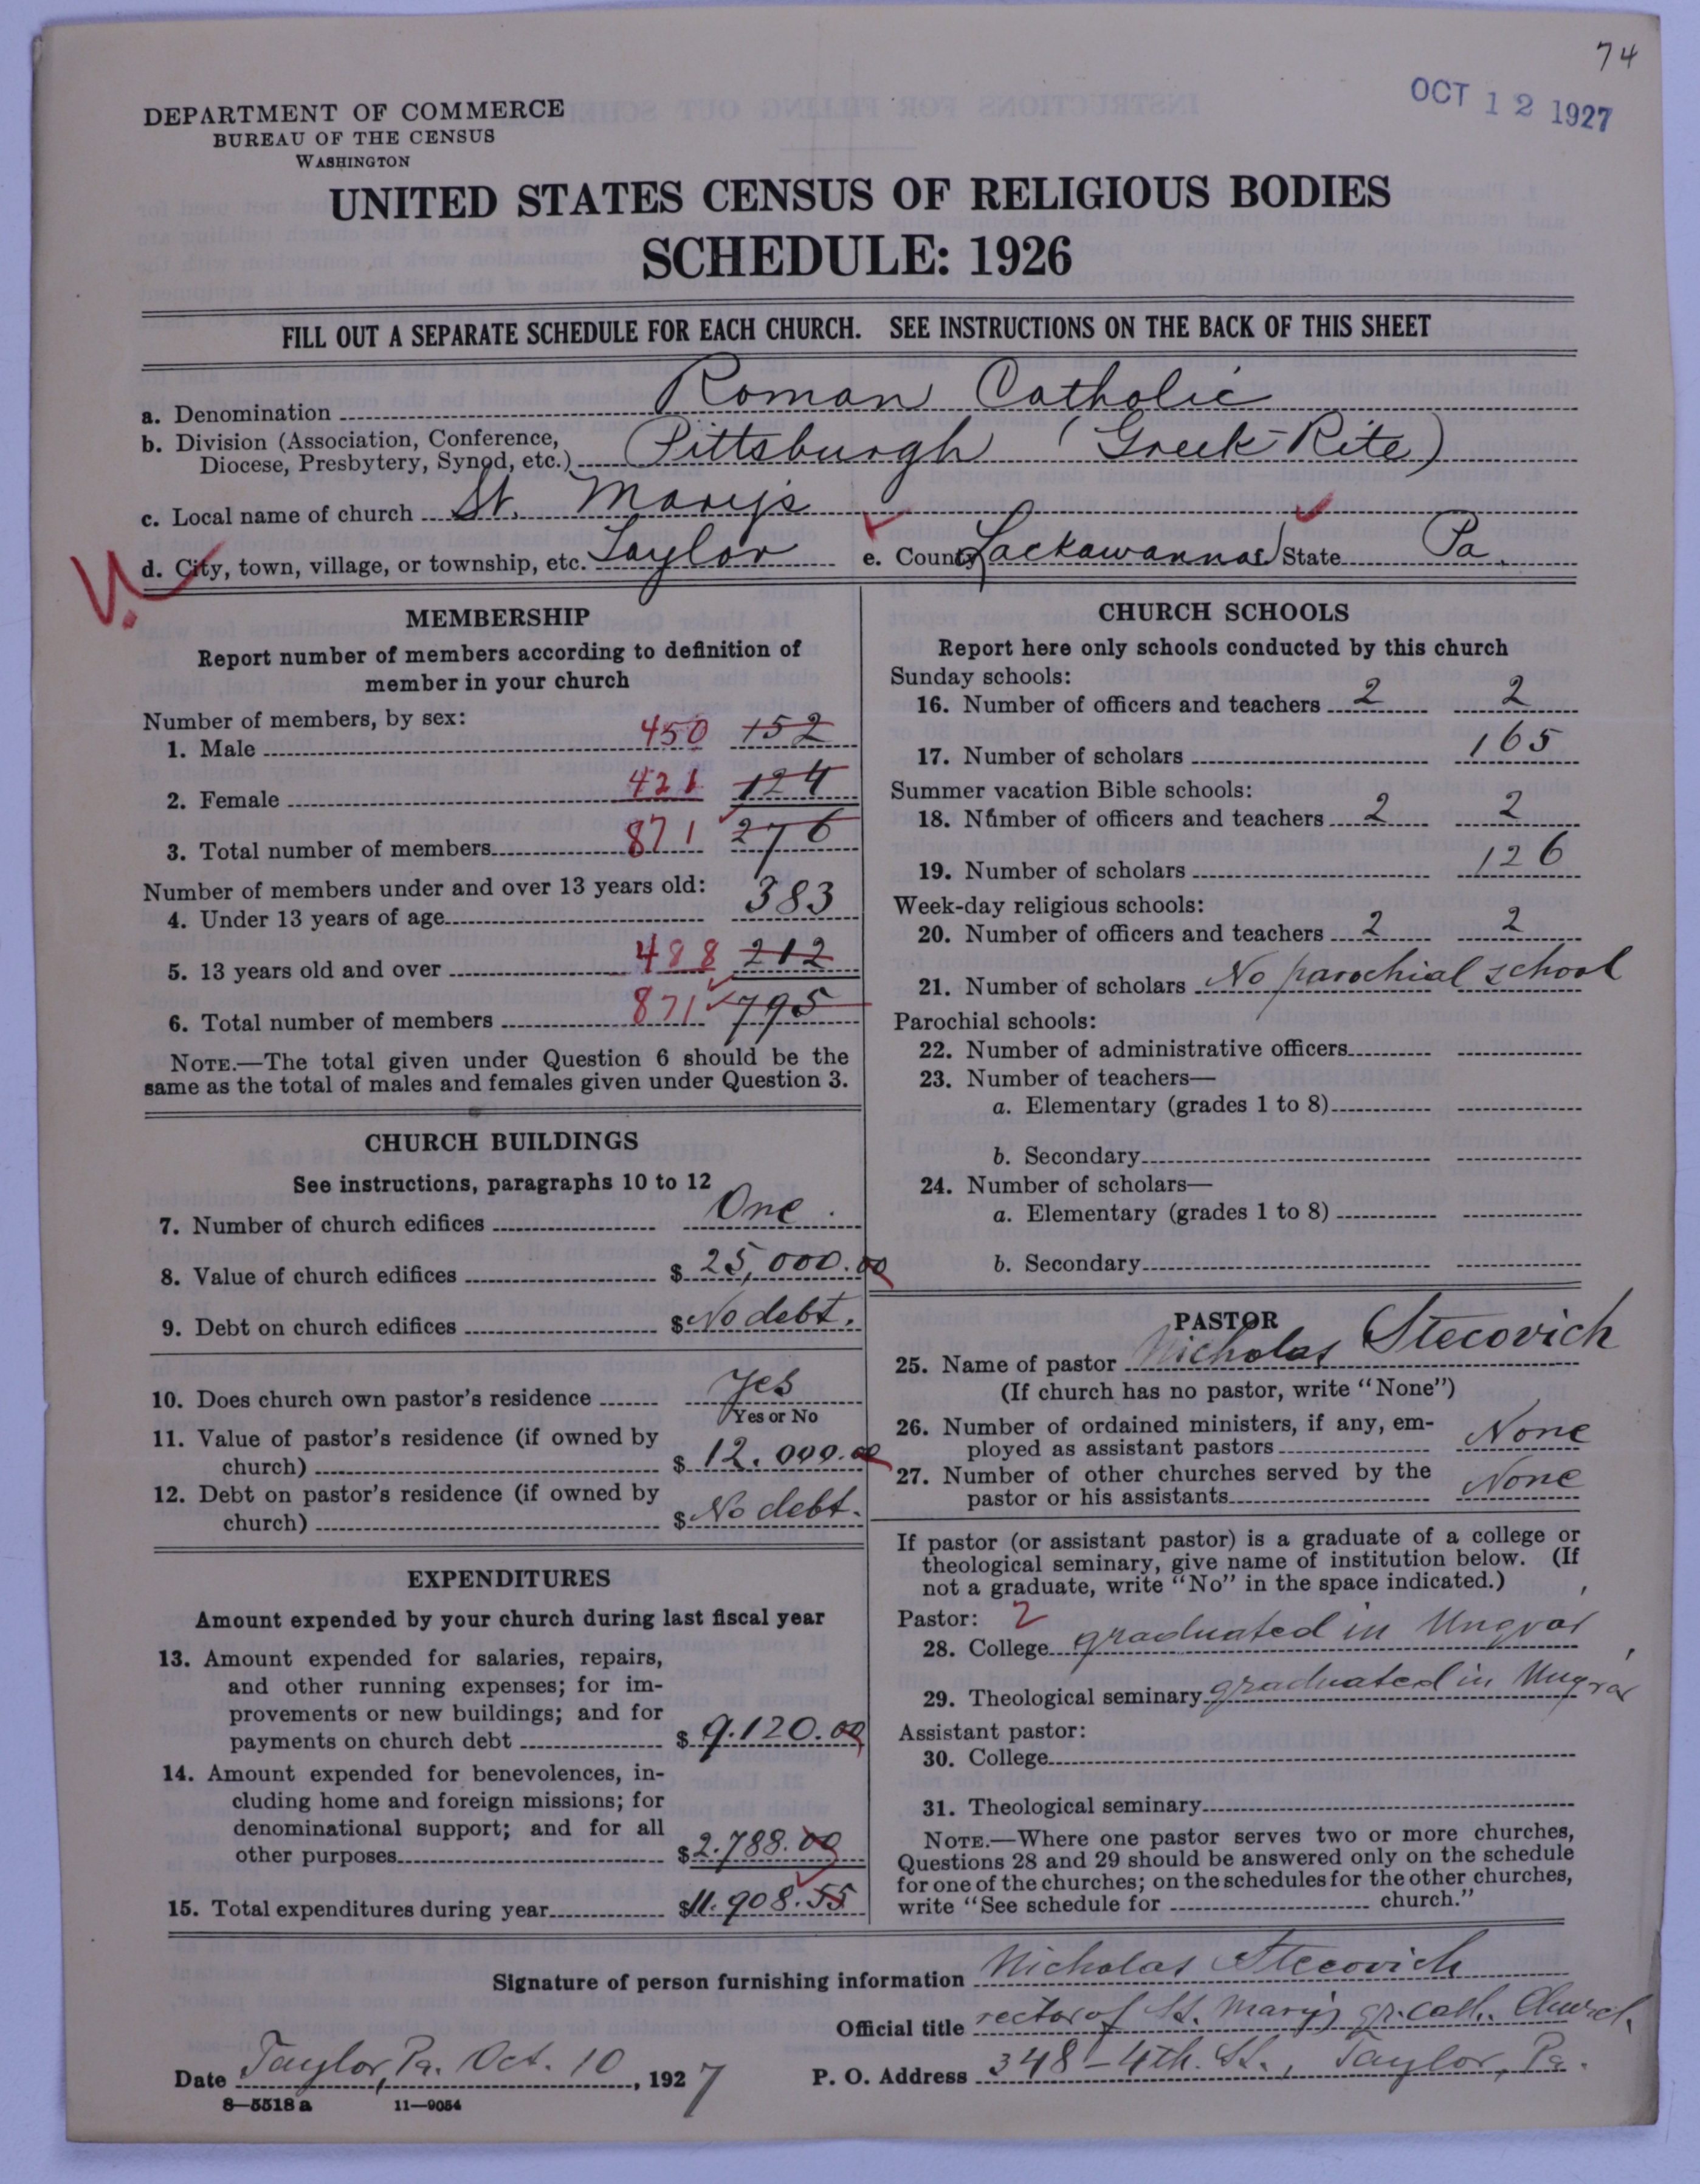 74
OCT 12 1927
DEPARTMENT OF COMMERCE
BUREAU OF THE CENSUS
WASHINGTON
UNITED STATES CENSUS OF RELIGIOUS BODIES
SCHEDULE: 1926
FILL OUT A SEPARATE SCHEDULE FOR EACH CHURCH. SEE INSTRUCTIONS ON THE BACK OF THIS SHEET
a. Denomination Roman Catholic
b. Division (Association, Conference,
Diocese, Presbytery, Synod, etc.) Pittsburgh (Greek-Rite)
c. Local name of church St. Mary's
d. City, town, village, or township, etc. Taylor e. County Lackawanna State Pa.
MEMBERSHIP
Report number of members according to definition of
member in your church
Number of members, by sex:
1. Male 450 152
2. Female 421 124
3. Total number of members 871 276
Number of members under and over 13 years old:
4. Under 13 years of age 383
5. 13 years old and over 488 212
6. Total number of members 871 795
NOTE.—The total given under Question 6 should be the
same as the total of males and females given under Question 3.
CHURCH BUILDINGS
See instructions, paragraphs 10 to 12
7. Number of church edifices One.
8. Value of church edifices $ 25,000.00
9. Debt on church edifices $ No debt.
10. Does church own pastor's residence Yes
Yes or No
11. Value of pastor's residence (if owned by
church) $ 12.000.00
12. Debt on pastor's residence (if owned by
church) $ No debt.
EXPENDITURES
Amount expended by your church during last fiscal year
13. Amount expended for salaries, repairs,
and other running expenses; for im-
provements or new buildings; and for
payments on church debt $ 9.120.00
14. Amount expended for benevolences, in-
cluding home and foreign missions; for
denominational support; and for all
other purposes $ 2.788.00
15. Total expenditures during year $ 11.908.55
CHURCH SCHOOLS
Report here only schools conducted by this church
Sunday schools:
16. Number of officers and teachers 2 2
17. Number of scholars 165
Summer vacation Bible schools:
18. Number of officers and teachers 2 2
19. Number of scholars 126
Week-day religious schools:
20. Number of officers and teachers 2 2
21. Number of scholars No parochial school
Parochial schools:
22. Number of administrative officers
23. Number of teachers—
a. Elementary (grades 1 to 8)
b. Secondary
24. Number of scholars—
a. Elementary (grades 1 to 8)
b. Secondary
PASTOR
25. Name of pastor Nicholas Stecovich
(If church has no pastor, write "None")
26. Number of ordained ministers, if any, em-
ployed as assistant pastors None
27. Number of other churches served by the
pastor or his assistants None
If pastor (or assistant pastor) is a graduate of a college or
theological seminary, give name of institution below. (If
not a graduate, write "No" in the space indicated.)
Pastor: 2
28. College graduated in Ungvár
29. Theological seminary graduated in Ungvár
Assistant pastor:
30. College
31. Theological seminary
NOTE.—Where one pastor serves two or more churches,
Questions 28 and 29 should be answered only on the schedule
for one of the churches; on the schedules for the other churches,
write "See schedule for church."
Signature of person furnishing information Nicholas Stecovich
Official title rector of St. Mary's gr. cath. Church.
Date Taylor, Pa. Oct. 10, 1927 P. O. Address 348-4th. St., Taylor, Pa.
8—5518 a 11—9054